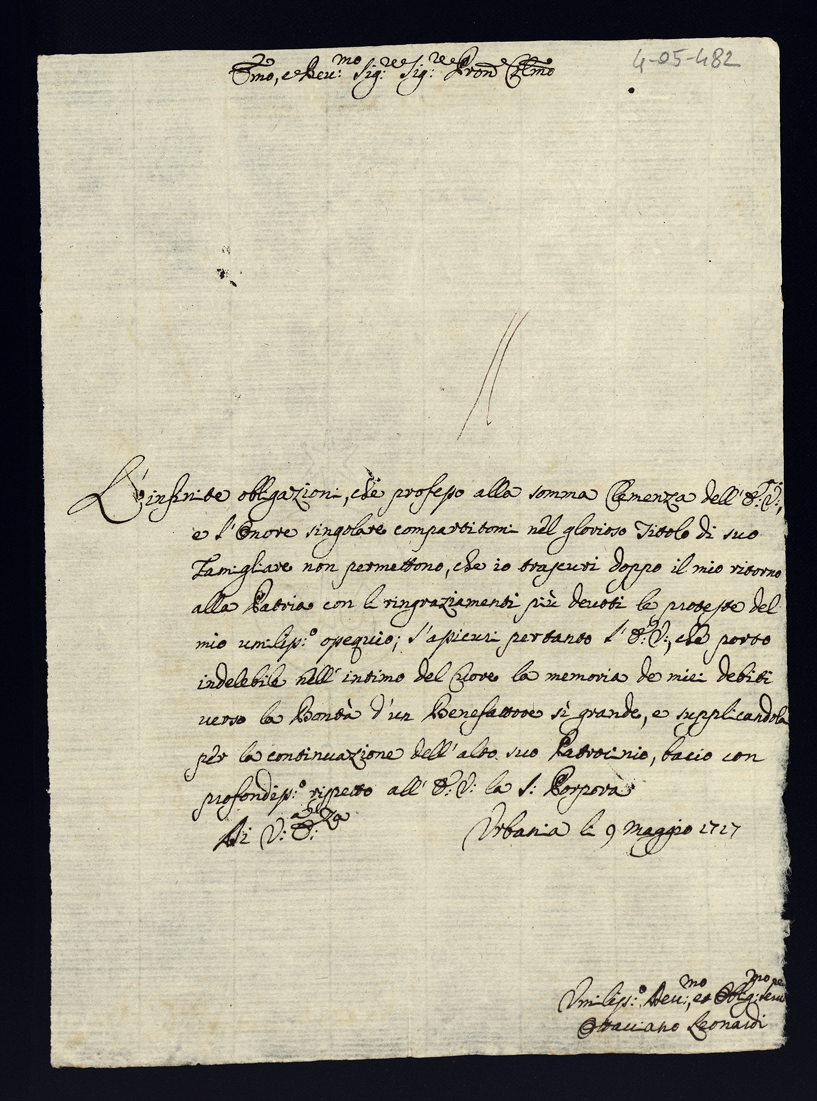 4-05-482
Emo, e Reu:mo Sig:re Sig:re Pron Colmo
L'infinite obligazioni, che professo alla somma Clemenza dell' E: V:,
e l'Onore singolare compartitomi nel glorioso Titolo di suo
Famigliare non permettono, che io trascuri doppo il mio ritorno
alla Patria con li ringraziamenti più devoti le proteste del
mio umiliss:o ossequio; s'assicuri pertanto l' E: V:, che porto
indelebile nell' intimo del Cuore la memoria de miei debiti
verso la Bontà d'un Benefattore sì grande, e supplicandola
per la continuazione dell' alto suo Patrocinio, bacio con
profondiss:o rispetto all' E: V: la S: Porpora
Di V: E:za
Urbania li 9 Maggio 1717
Umiliss:o Deu:mo, et Oblig:mo Seru:re
Ottaviano Leonardi